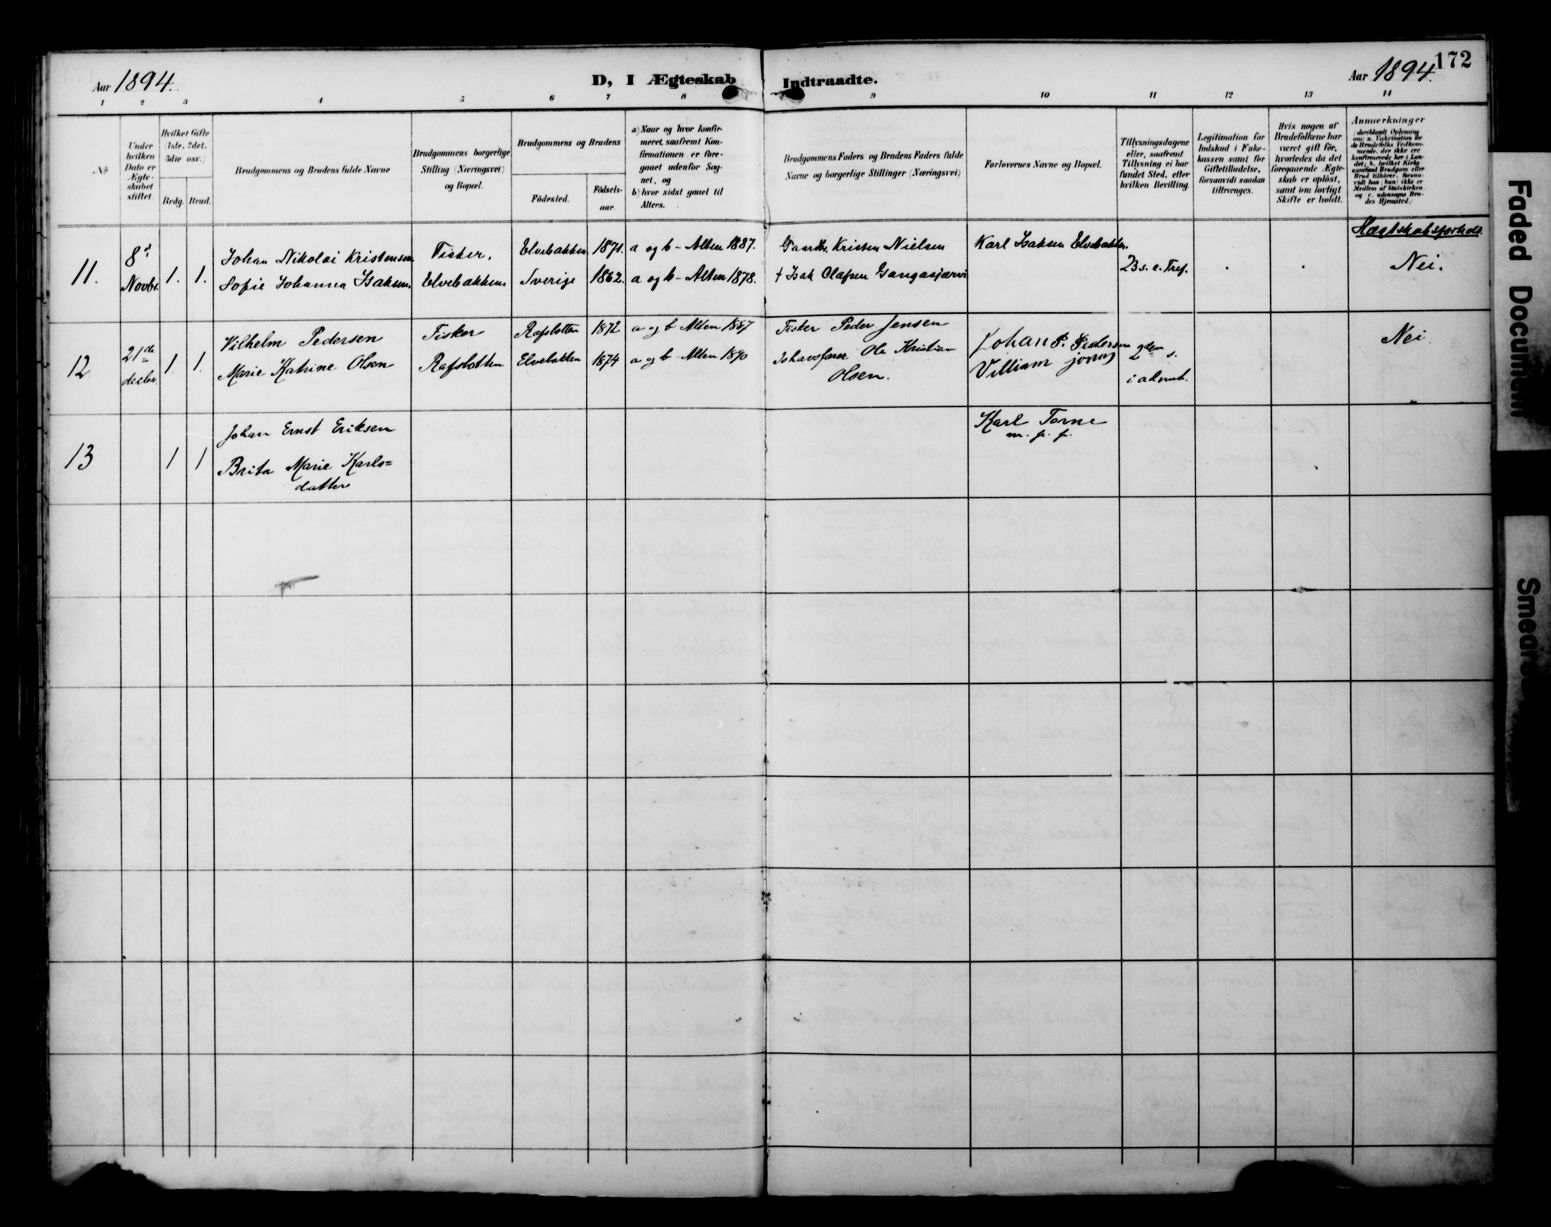 172
Aar 1894.
D, I Ægteskab Indtraadte.
Aar 1894.
1 2 3 4 5 6 7 8 9 10 11 12 13 14
No
Under hvilken Dato er Ægteskabet stiftet.
Hvilket Gifte (1ste, 2det, 3die osv.)
Brdg. Brud.
Brudgommens og Brudens fulde Navne
Brudgommens borgerlige Stilling (Næringsvei) og Bopæl.
Brudgommens og Brudens
Fødested.
Fødsels-aar.
a) Naar og hvor konfirmeret, saafremt Konfirmationen er foregaaet udenfor Sognet, og
b) hvor sidst gaaet til Alters.
Brudgommens Faders og Brudens Faders fulde Navne og borgerlige Stillinger (Næringsvei)
Forlovernes Navne og Bopæl.
Tillysningsdagene eller, saafremt Tillysning ei har fundet Sted, efter hvilken Bevilling.
Legitimation for Indskud i Enkekassen samt for Giftetilladelse, forsaavidt saadan tiltrænges.
Hvis nogen af Brudefolkene har været gift før, hvorledes da det foregaaende Ægteskab er opløst, samt om lovligt Skifte er holdt.
Anmærkninger
Slægtskabsforhold.
11. 8d Novbr. 1. 1.
Johan Nikolai Kristensen Fisker, Elvebakken 1871. a og b - Alten 1887. Gaardbr. Kristen Nielsen Karl Isaksen Elvebakken.
Sofie Johanna Isaksen. Elvebakken Sverige 1862. a og b - Alten 1878. † Isak Olafsen 23 s. e. Tref. . . Nei.
12 21de decbr. 1 1.
Vilhelm Pedersen Fisker Rafsbotten 1872 a og b Alten 1887 Fisker Peder Jensen Johan P. Pedersen Nei.
Marie Katrine Olsen Rafsbotten Elvebakken 1874 a og b Alten 1890 Ole Kristian Olsen. Villiam 2den s. i advent.
13 1 1
Johan Ernst Eriksen Karl Torne
m. p. p.
Brita Marie Karls=
datter
Faded Document
Smeared